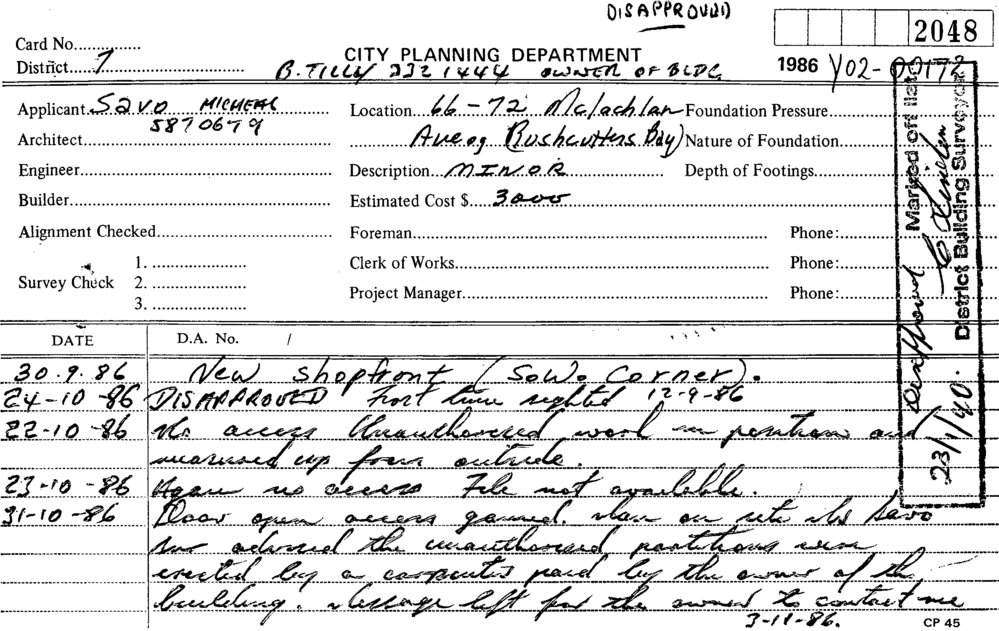 DISAPPROVED
2048
Card No.
CITY PLANNING DEPARTMENT
1986 Y02-00172
District 7
B. TILLY 3321444 OWNER OF BLDG
Applicant SAVO MICHEAL
Location 66-72 Mclachlan
Foundation Pressure
5870679
Architect
Ave (Rushcutters Bay)
Nature of Foundation
Engineer
Description MINOR
Depth of Footings
Builder
Estimated Cost $ 3000
Alignment Checked
Foreman
Phone:
Survey Check
1.
Clerk of Works
Phone:
2.
3.
Project Manager
Phone:
Marked off list
District Building Surveyor
Disapproved
23/1/90.
DATE
D.A. No. /
30.9.86 New shopfront (So. Wo. Corner).
24-10-86 DISAPPROVED First time sighted 12-9-86
22-10-86 No access Unauthorised work in position and
measured up from outside.
23-10-86 Again no access File not available.
31-10-86 Door open access gained. Man on site Mr Savo
advised the unauthorised partitions were
erected by a carpenter paid by the owner of the
building. Message left for the owner to contact me
3-11-86.
CP 45